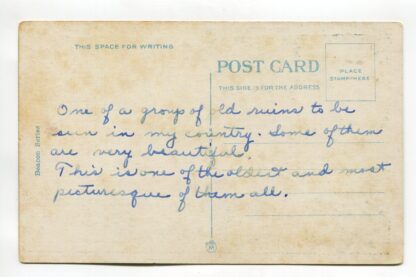 THIS SPACE FOR WRITING
POST CARD
THIS SIDE IS FOR THE ADDRESS
PLACE
STAMP HERE
One of a group of old ruins to be
seen in my country. Some of them
are very beautiful.
This is one of the oldest and most
picturesque of them all.
Beacon Series